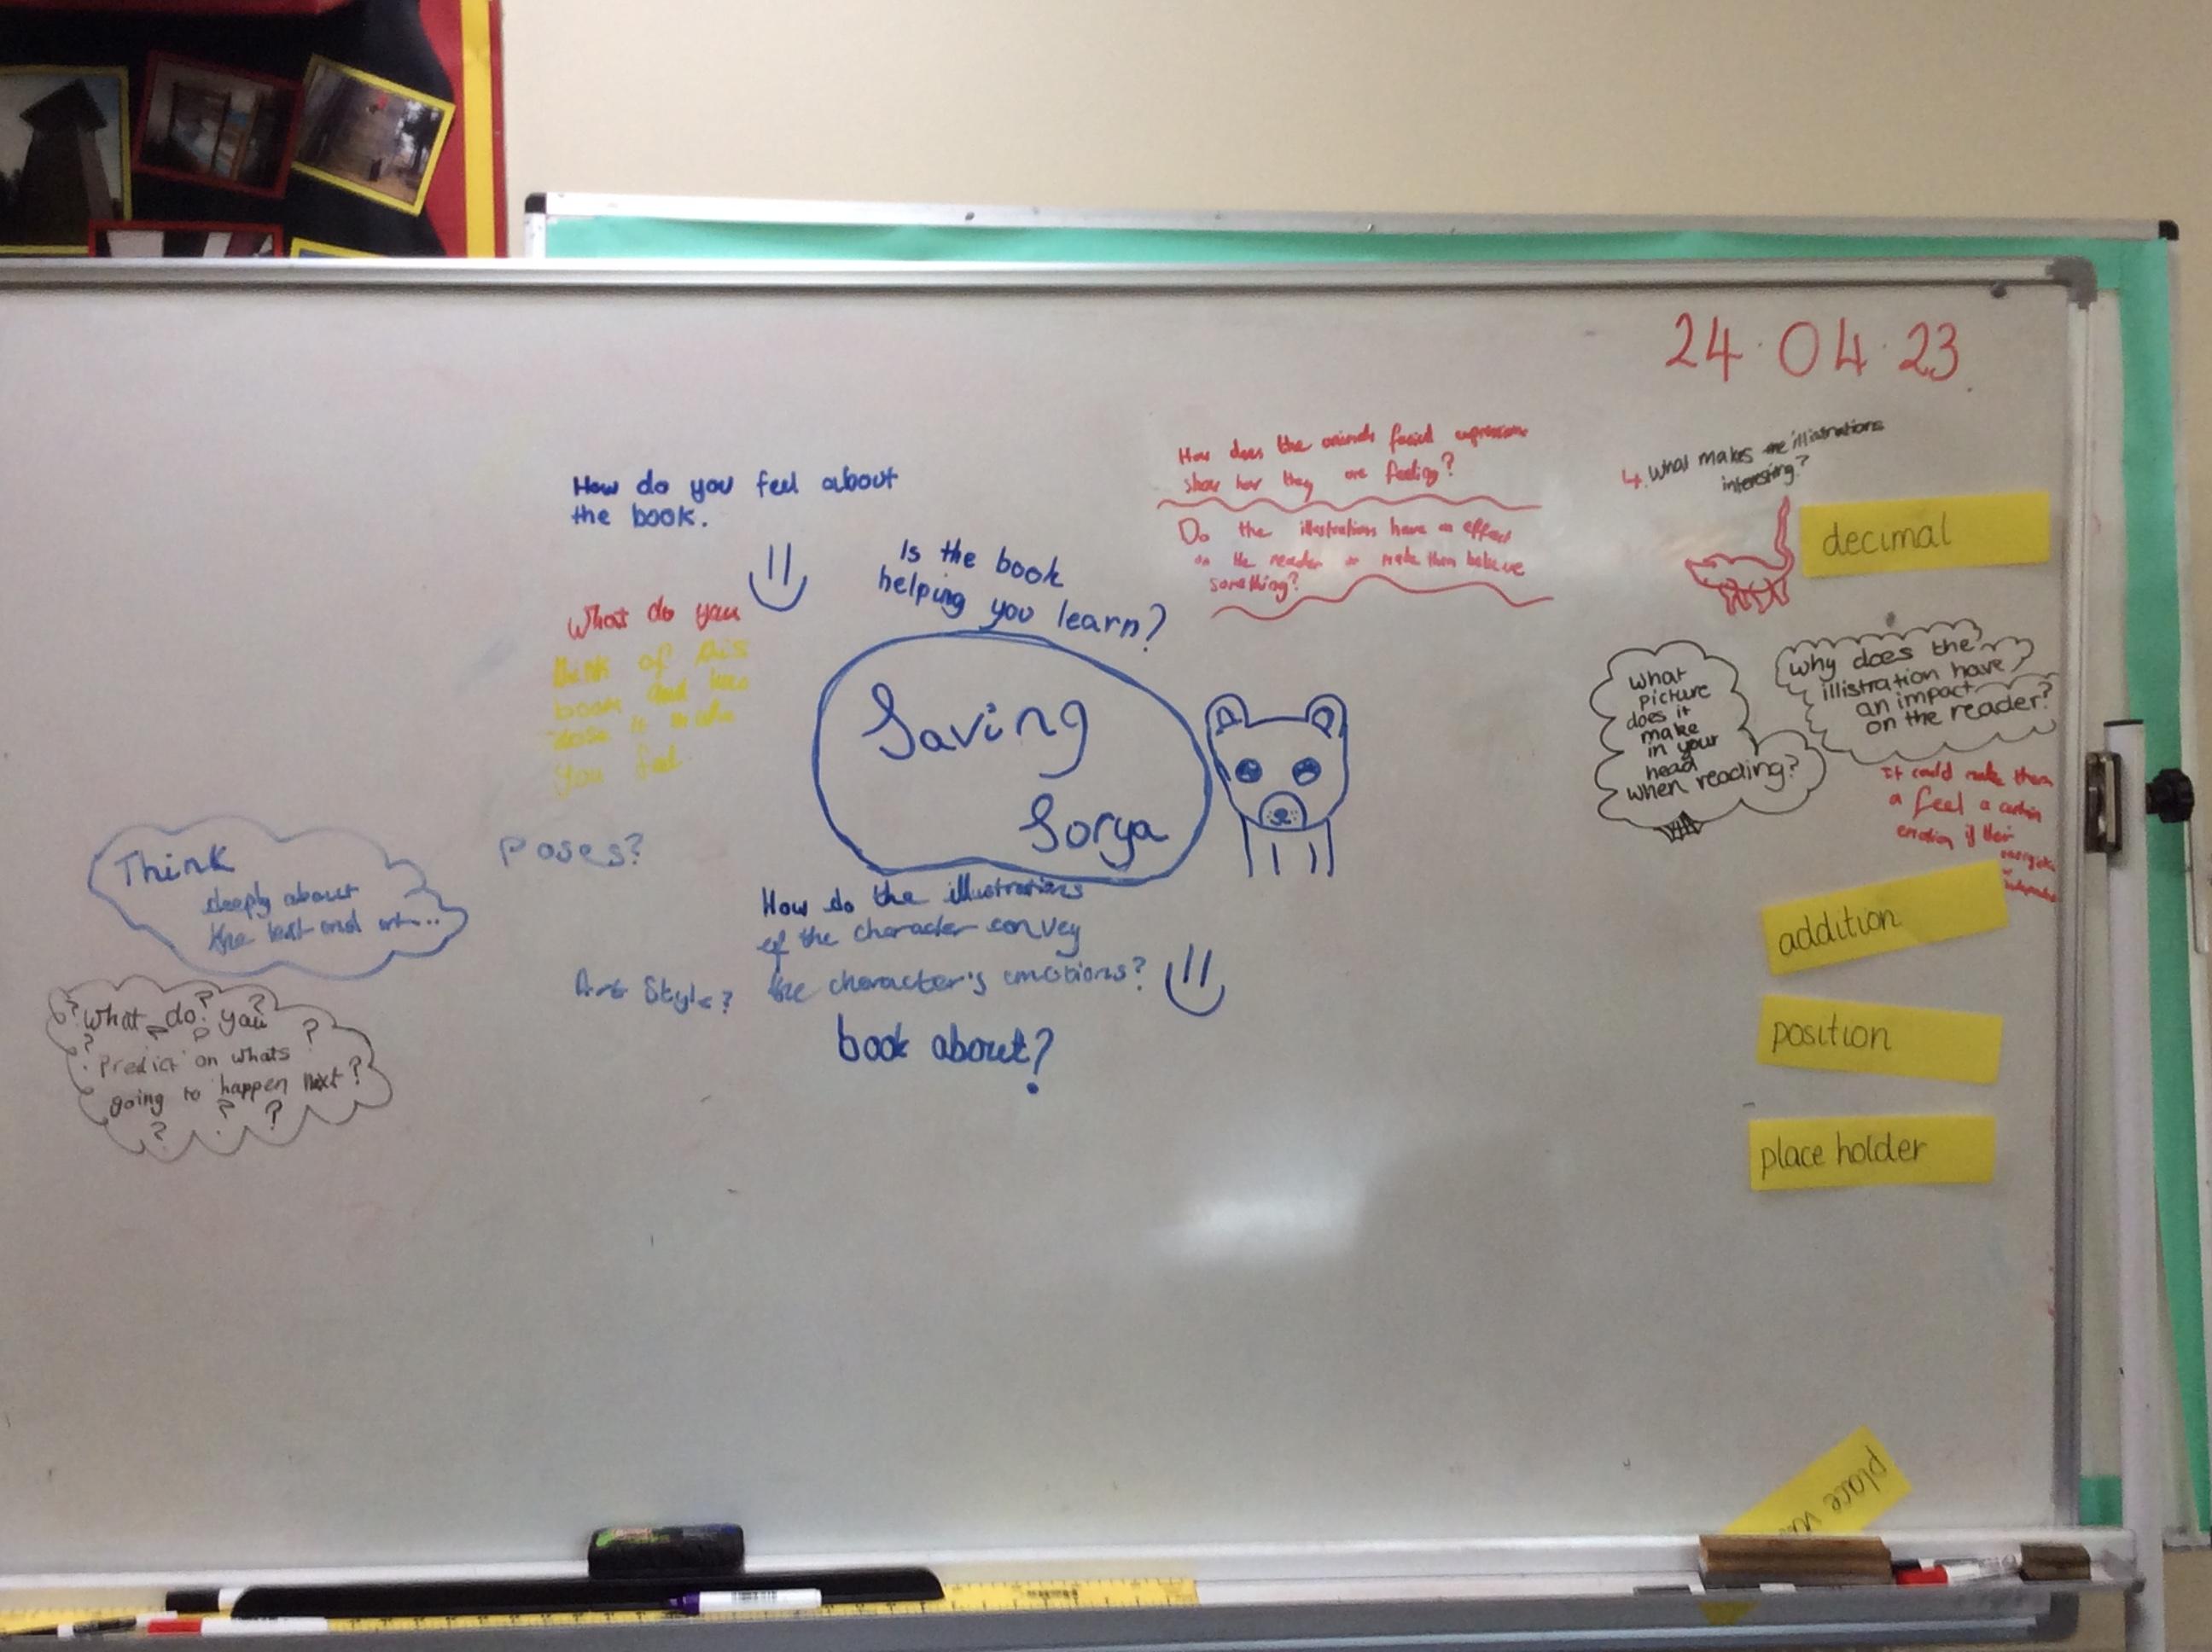 24.04.23
How do you feel about
the book.
Is the book
helping you learn?
How does the animals facial expressions
show how they are feeling?
Do the illustrations have an effect
on the reader or make them believe
something?
What makes the illistrations
interesting?
decimal
What do you
think of this
book and
you feel
Saving
Sorya
What
picture
does it
make
in your
head
when reading?
Why does the
illistration have
an impact
on the reader?
It could make them
a feel a certain
emotion if their
Think
deeply about
the text and art...
Poses?
How do the illustrations
of the character convey
the character's emotions?
Art Style?
book about?
What do you
Predict on whats
going to happen next?
addition
position
place holder
place